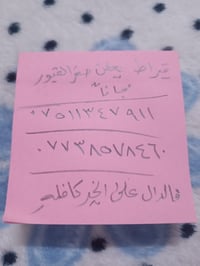 قيراط يعلن حفر القبور
مجاناً
٠٧٥١١٣٤٧٩١١
٠٧٧٣٨٥٧٨٤٦٠
فالدال على الخير كفاعله